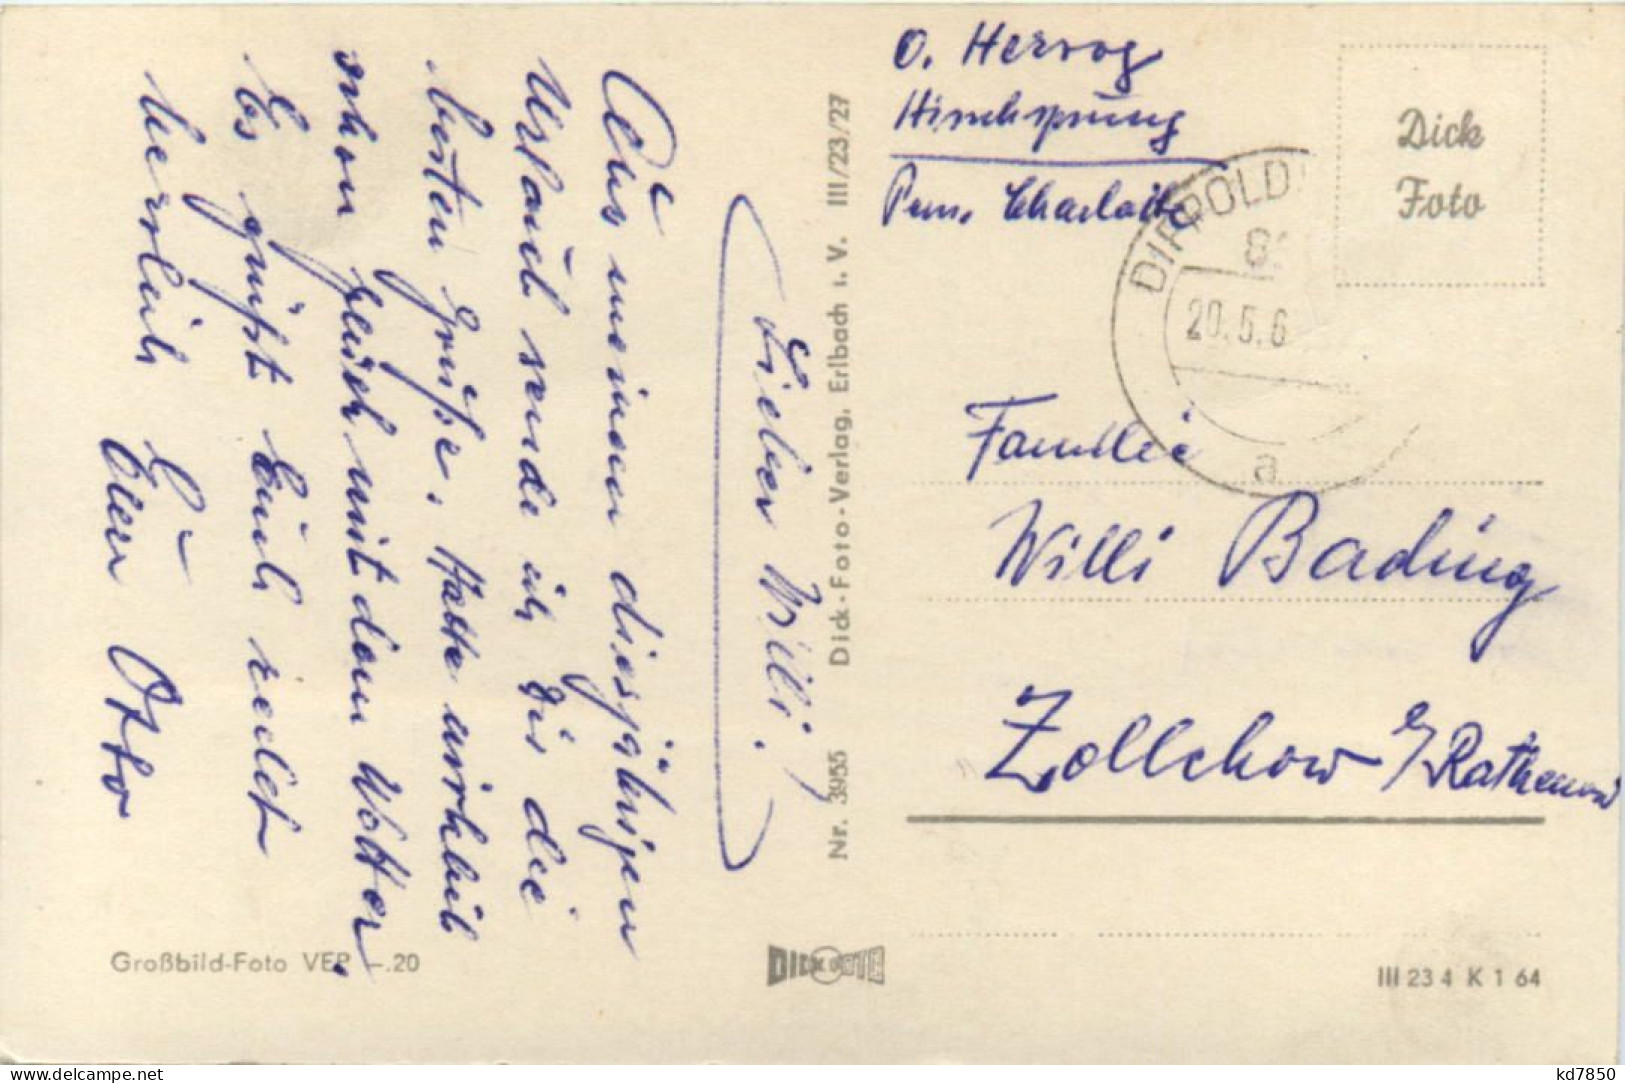 Lieber Willi!
Aus meinem diesjährigen
Urlaub sende ich Dir die
besten Grüße. Hatte wirklich
schon Glück mit dem Wetter.
Es grüßt Euch recht
herzlich Euer Otto
Großbild-Foto VEP -.20
Nr. 3955 Dick-Foto-Verlag, Erlbach i. V. III/23/27
DICK FOTO
O. Herzog
Hirschsprung
Pens. Charlotte
Dick
Foto
DIPPOLDI
8
20.5.6
a
Familie
Willi Bading
Zollchow b/Rathenow
III 23 4 K 1 64
kd7850